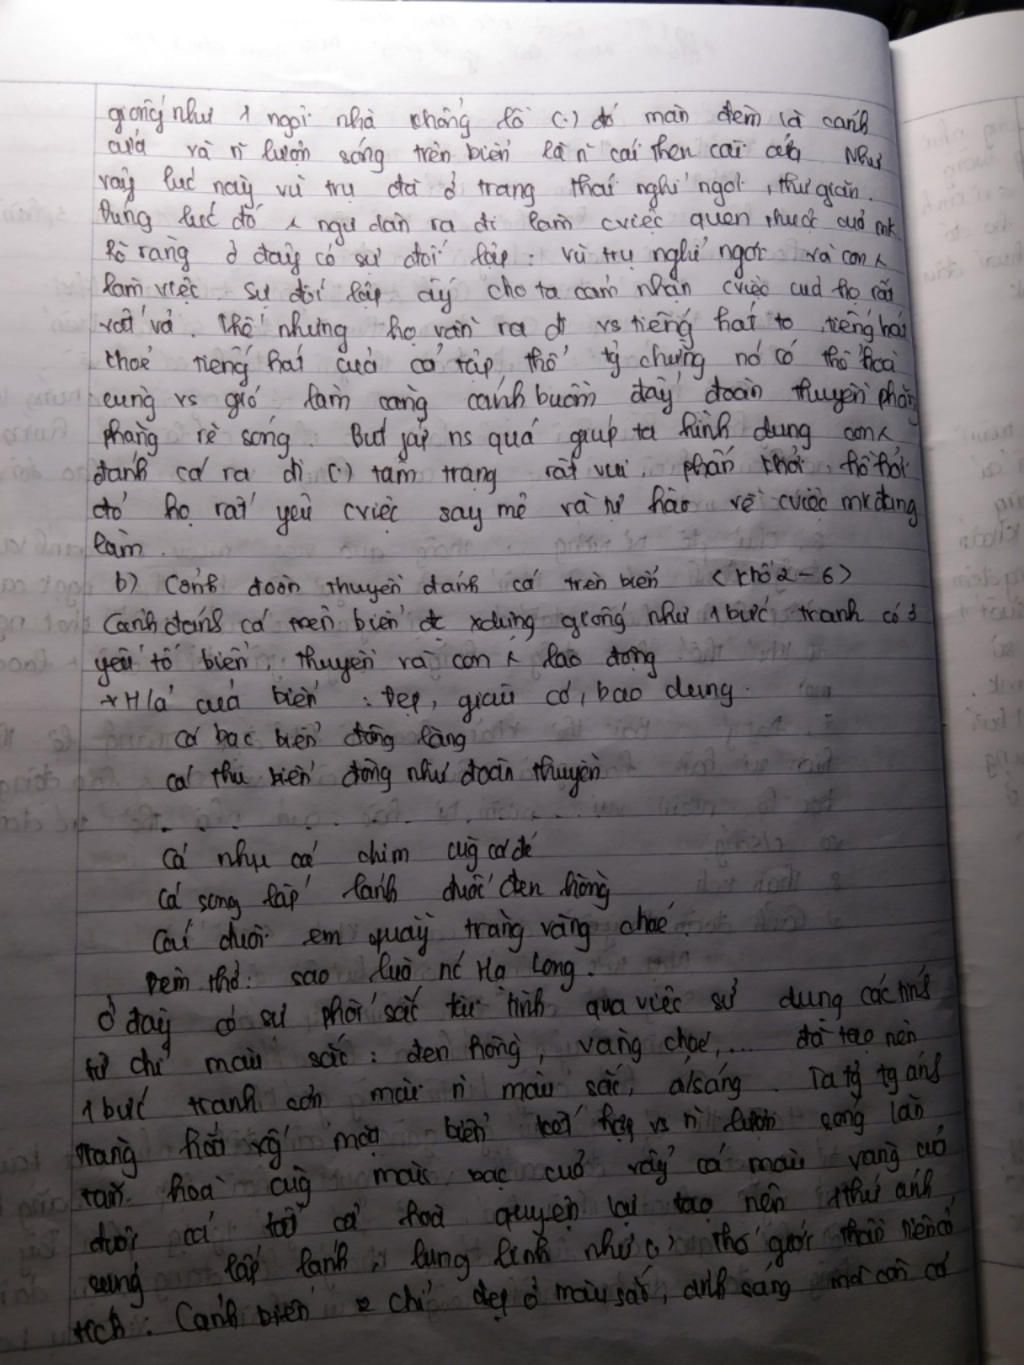 giống như 1 ngôi nhà khổng lồ (.) đó màn đêm là cánh
cửa và n~ lượn sóng trên biển là n~ cái then cài cửa. Như
vậy lúc này vũ trụ đã ở trạng thái nghỉ ngơi, thư giãn.
Đúng lúc đó ng dân ra đi làm cviệc quen thuộc của mk
Rõ ràng ở đây có sự đối lập: vũ trụ nghỉ ngơi và con
làm việc. Sự đối lập ấy cho ta cảm nhận cviệc của họ rất
vất vả. Thế nhưng họ vẫn ra đi vs tiếng hát to, tiếng hát
khoẻ tiếng hát của cả tập thể tg chừng nó có thể hoà
cùng vs gió làm căng cánh buồm đẩy đoàn thuyền phăng
phăng rẽ sóng. Bút pháp ns quá giúp ta hình dung con
đánh cá ra đi (.) tâm trạng rất vui, phấn khởi, hồ hởi
đó họ rất yêu cviệc say mê và tự hào về cviệc mk đang
làm.
b) Cảnh đoàn thuyền đánh cá trên biển (khổ 2-6)
Cảnh đánh cá trên biển đc xdựng giống như 1 bức tranh có 3
yếu tố biển, thuyền và con lao động
* H/a của biển: Đẹp, giàu có, bao dung.
Cá bạc biển đông lặng
Cá thu biển đông như đoàn thuyền
. . . .
Cá nhụ cá chim cùg cá đé
Cá song lấp lánh đuốc đen hồng
Cái đuôi em quẫy trăng vàng choé.
Đêm thở: sao lùa nc Hạ Long.
Ở đây có sự phối sắc tài tình qua việc sử dụng các tính
từ chỉ màu sắc: đen hồng, vàng choé,... đã tạo nên
1 bức tranh sơn mài n~ màu sắc, a/sáng. Ta tg tg ánh
trăng hắt xg mặt biển kết hợp vs n~ lượn sóng lăn
tăn hoà cùg màu bạc của vẩy cá màu vàng của
đuôi cá tất cả hoà quyện lại tạo nên 1 thứ ánh
sáng lấp lánh, lung linh như (.) thế giới thần tiên cổ
tích. Cảnh biển chỉ đẹp ở màu sắc, ánh sáng mà còn có